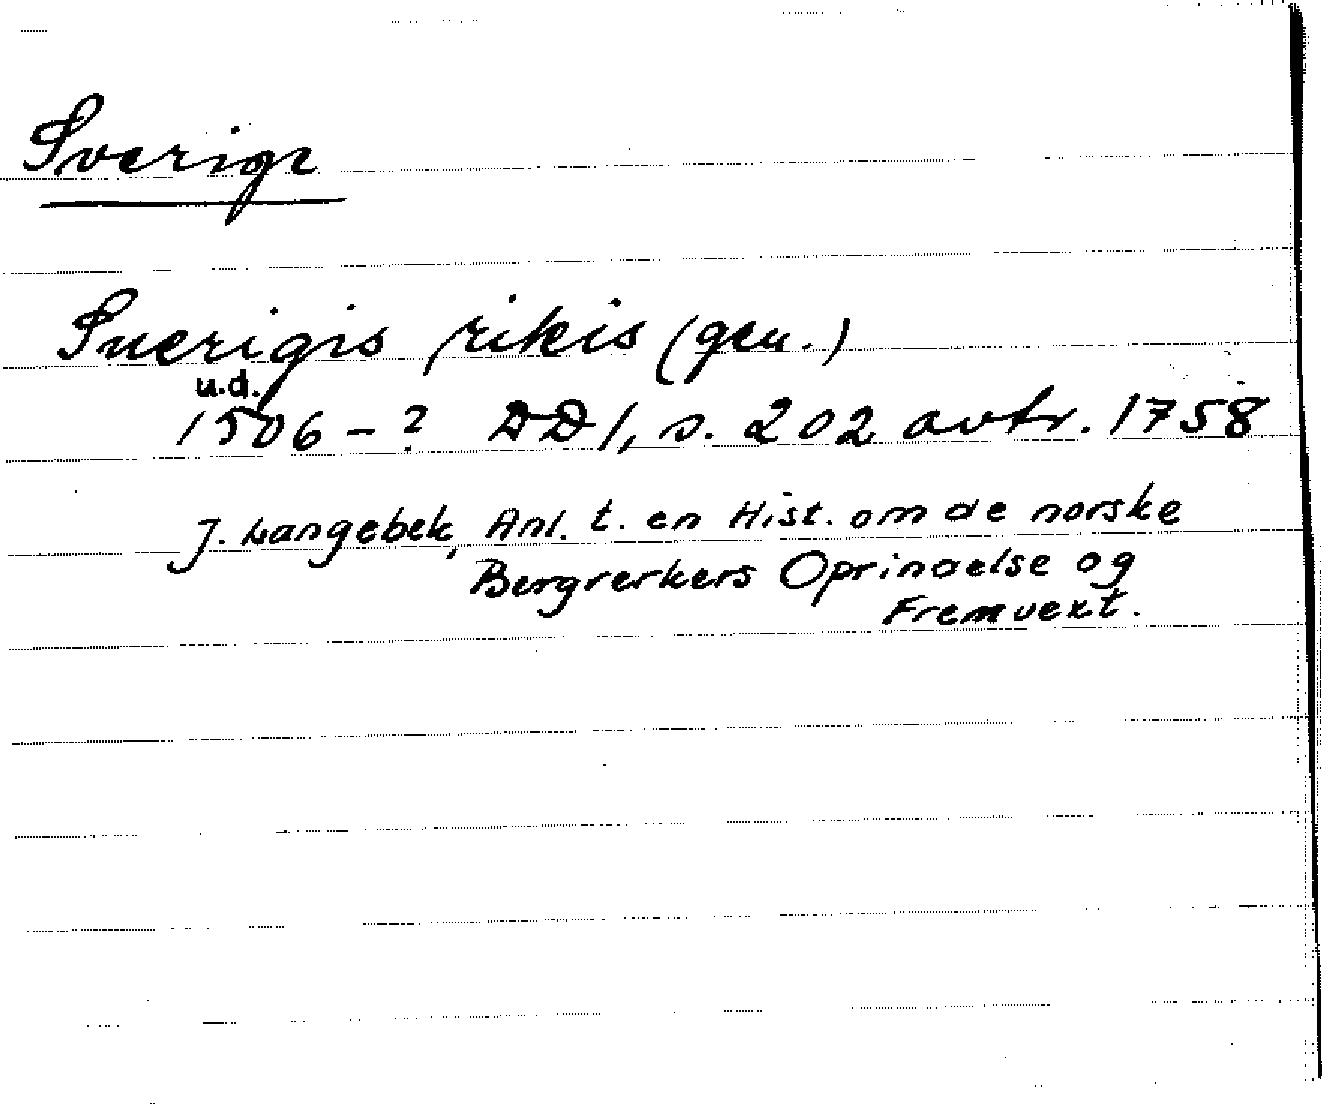 Sverige
Suerigis rikis (gen.)
u.d.
1506 - ? DD 1, s. 202 avtr. 1758
J. Langebek, Anl. t. en Hist. om de norske
Bergverkers Oprindelse og
Fremvext.